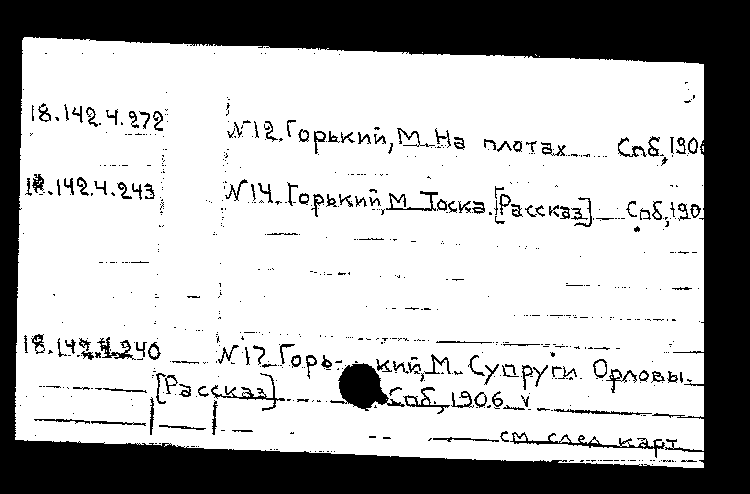 18.142.4.272 №12. Горький, М. На плотах Спб, 1906
18.142.4.243 №14. Горький, М. Тоска. [Рассказ] Спб, 190
18.142.4.240 №17 Горь- кий, М. Супруги Орловы.
[Рассказ] Спб, 1906
см. след карт